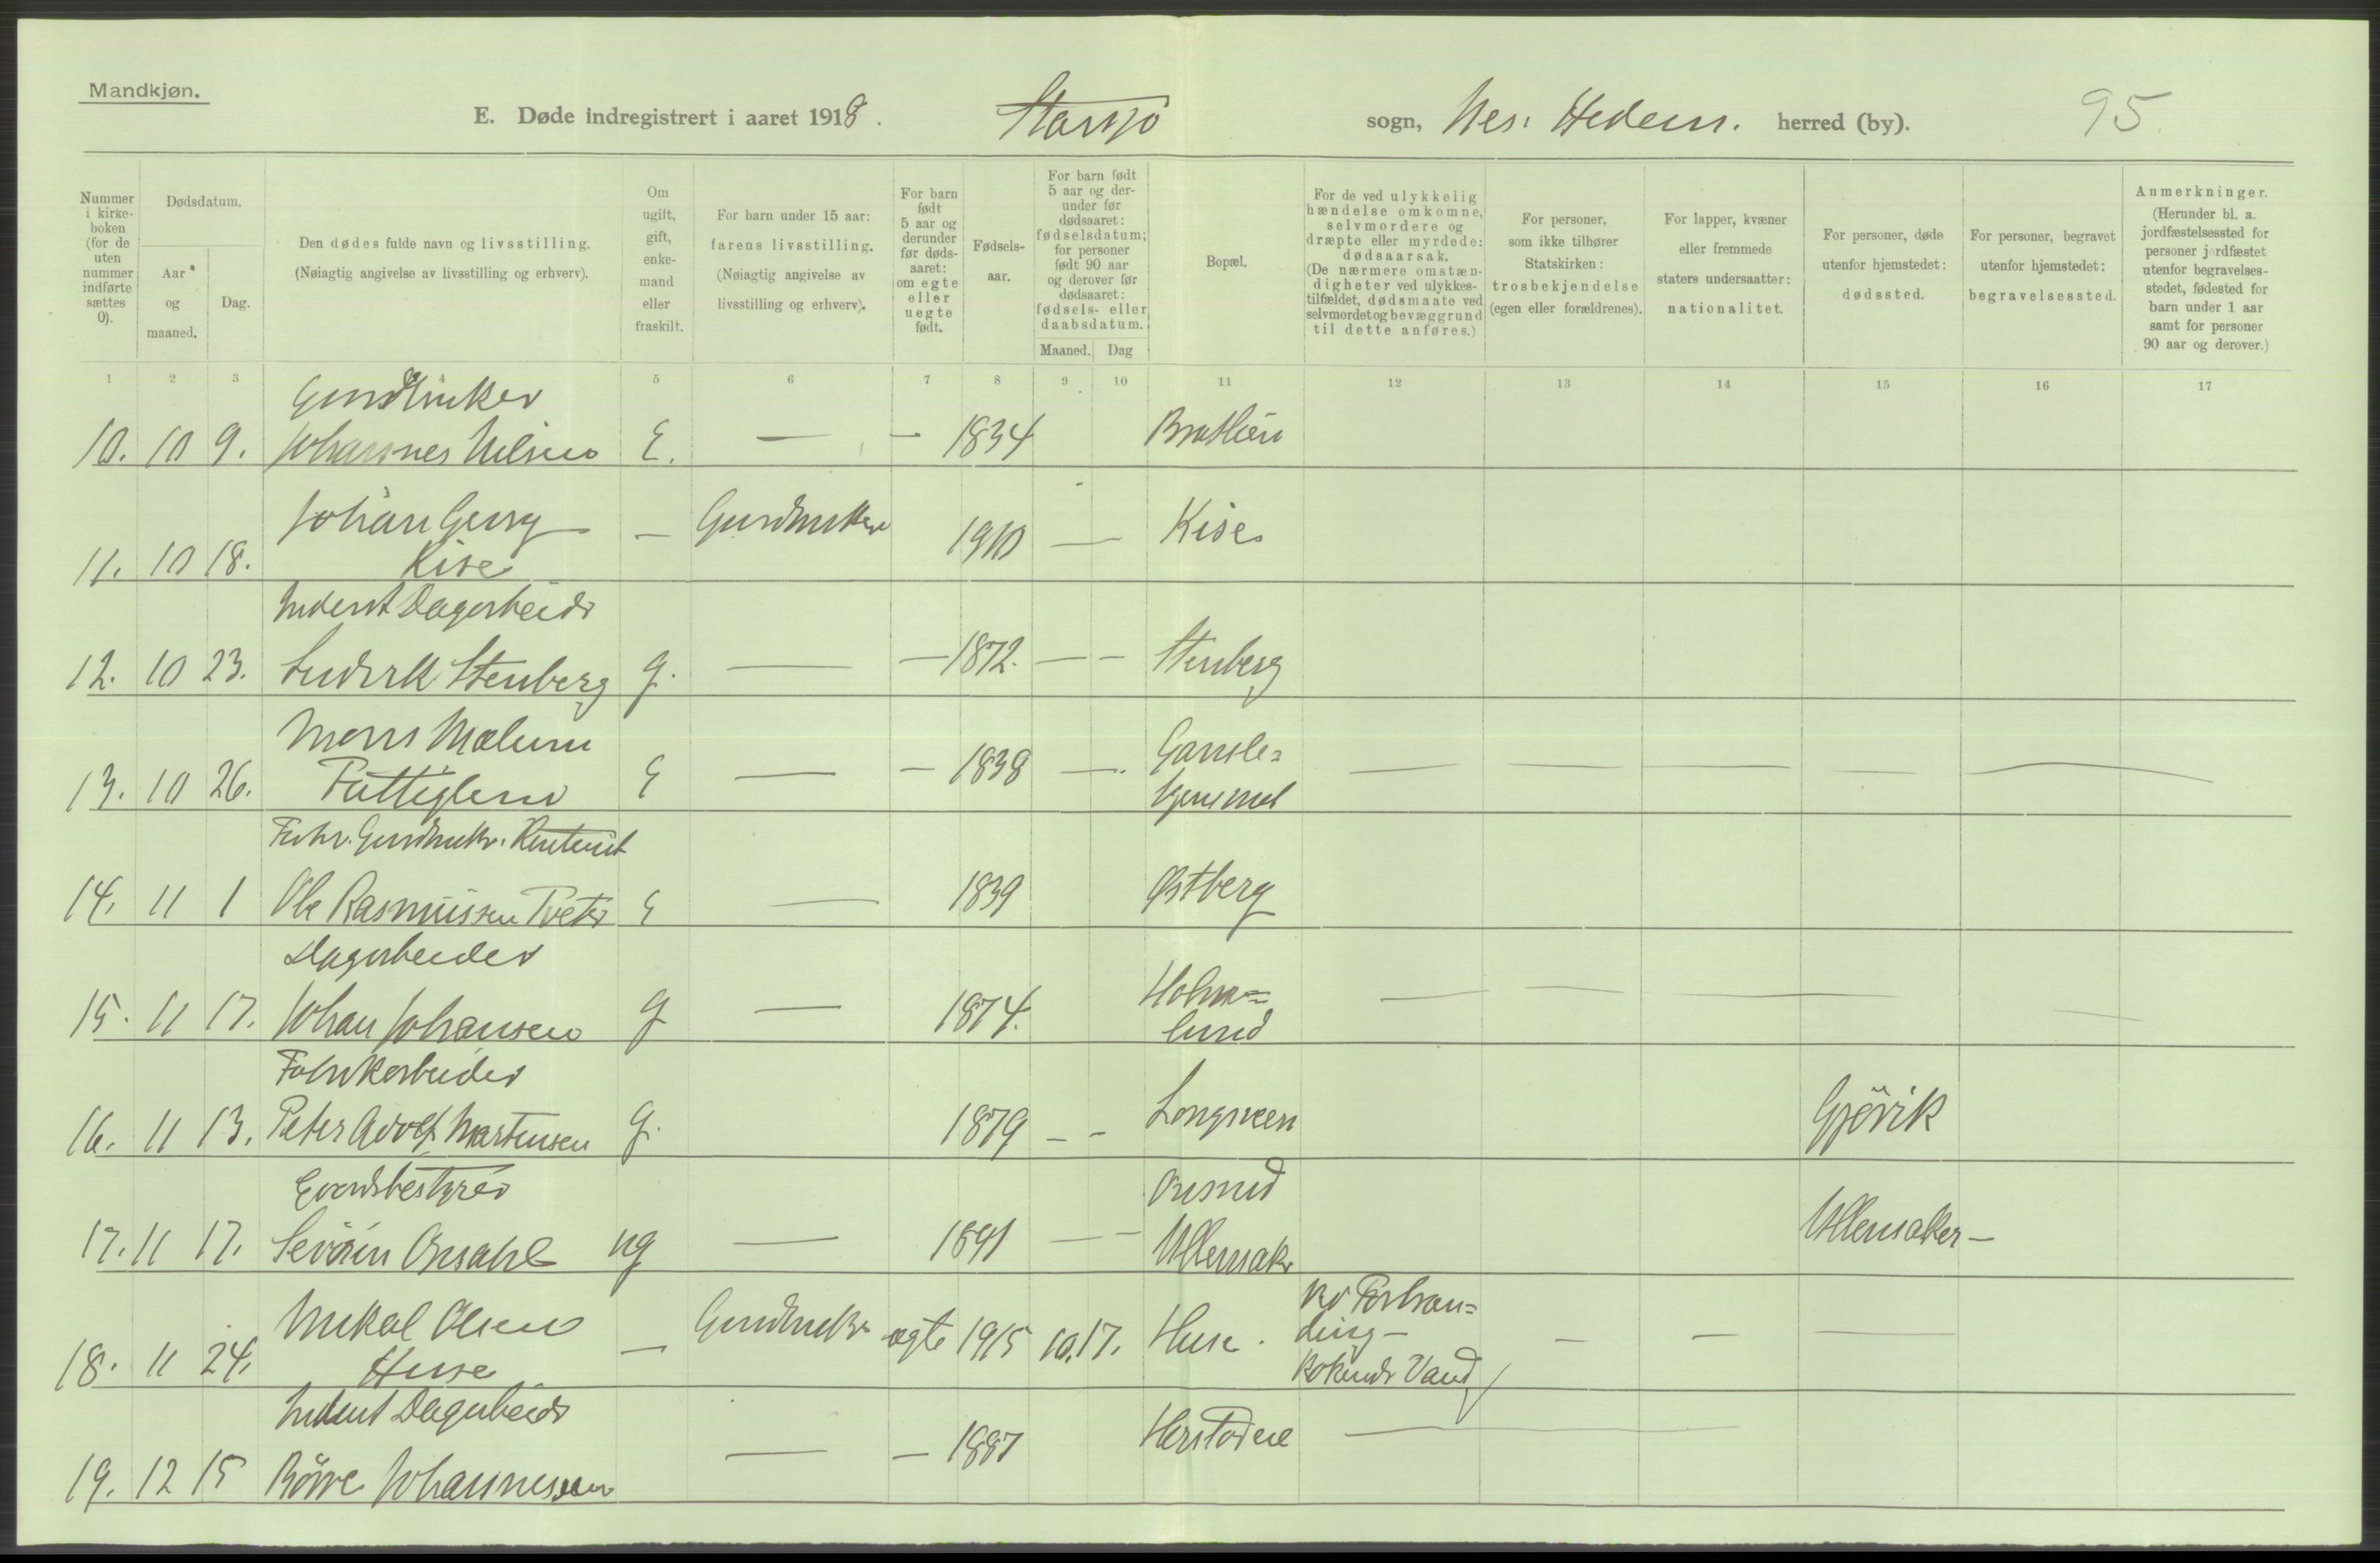 Mandkjøn.
E. Døde indregistrert i aaret 1918. sogn, Nes. Hedem. herred (by). 95.
Nummer i kirkeboken (for de uten nummer indførte sættes 0).
Dødsdatum.
Aar og maaned.
Dag.
Den dødes fulde navn og livsstilling.
(Nøiagtig angivelse av livsstilling og erhverv).
Om ugift, gift, enkemand eller fraskilt.
For barn under 15 aar: farens livsstilling.
(Nøiagtig angivelse av livsstilling og erhverv).
For barn født 5 aar og derunder før dødsaaret: om egte eller uegte født.
Fødselsaar.
For barn født 5 aar og derunder før dødsaaret: fødselsdatum; for personer født 90 aar og derover før dødsaaret: fødsels- eller daabsdatum.
Maaned. Dag
Bopæl.
For de ved ulykkelig hændelse omkomne, selvmordere og dræpte eller myrdede: dødsaarsak.
(De nærmere omstændigheter ved ulykkestilfældet, dødsmaate ved selvmordet og bevæggrund til dette anføres.)
For personer, som ikke tilhører Statskirken: trosbekjendelse (egen eller forældrenes).
For lapper, kvæner eller fremmede staters undersaatter: nationalitet.
For personer, døde utenfor hjemstedet: dødssted.
For personer, begravet utenfor hjemstedet: begravelsessted.
Anmerkninger.
(Herunder bl. a. jordfæstelsessted for personer jordfæstet utenfor begravelsesstedet, fødested for barn under 1 aar samt for personer 90 aar og derover.)
1 2 3 5 6 7 8 9 10 11 12 13 14 15 16 17
Gaardbruker
10. 10 9. Johannes Nilsen E. — — 1834 Bratlien
Johan Georg — Gaardbruker 1910 — Kise
11. 10 18. Kise
Inderst Dagarbeider
12. 10 23. Ludvik Stenberg g. — — 1872. — — Stenberg
Mons Mælum Gamle=
13. 10 26. Fattiglem E — — 1838 — hjemmet — — — — —
Forhv. Gaardbruker. Rentenist
14. 11 1 Ole Rasmussen Tveter E — 1839 Østberg
Dagarbeider
15. 11 17. Johan Johansen g — 1874. Holm=
lund — — — —
Fabrikarbeider
16. 11 13. Peter Adolf Martensen g. 1879 — — Longveen Gjøvik
Gaardsbestyrer
17. 11 17. Ørsahl ug — 1891 — — Ullensaker Ullensaker —
Mikal Olsen — Gaardbruker egte 1915 10. 17. Huse. Ved Forbræn=
ding —
18. 11 24. Huse kokende Vand — — —
Inderst Dagarbeider
19. 12 15 Børre Johannessen — — 1887 —